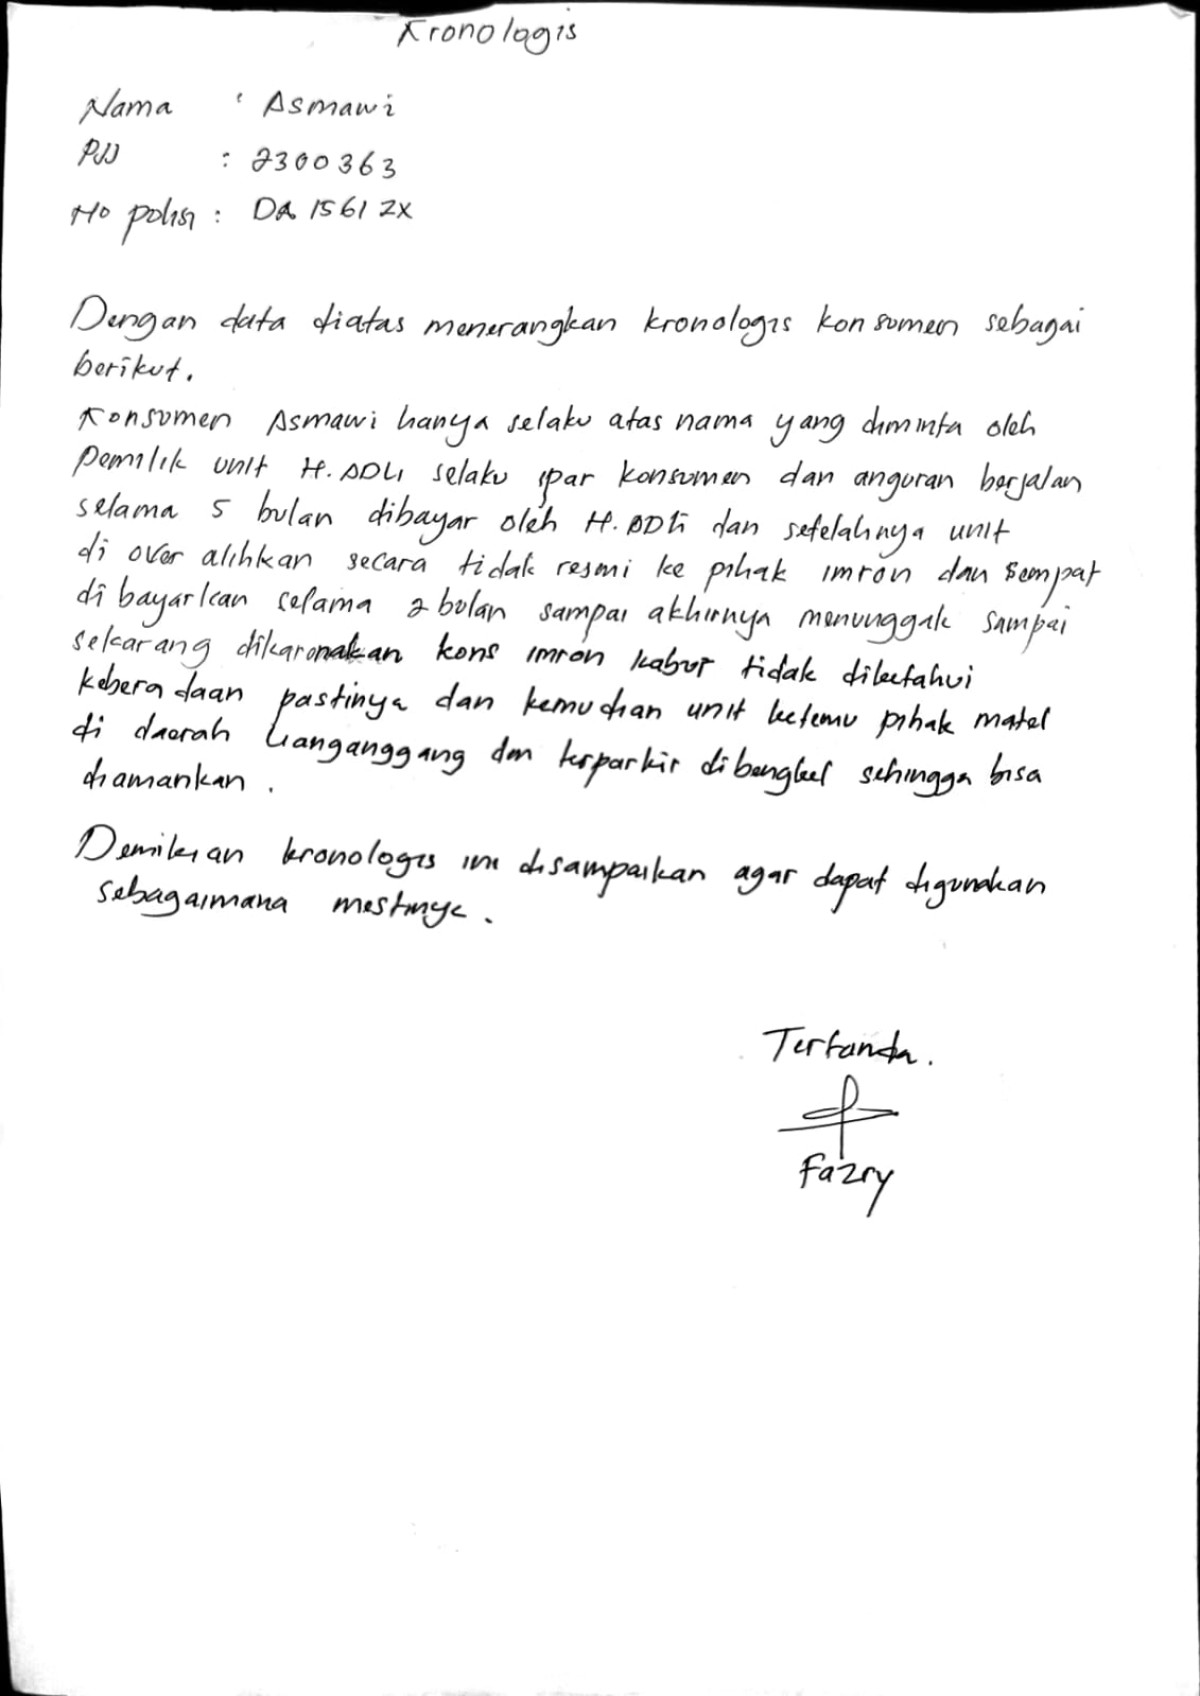 Kronologis
Nama : Asmawi
PJJ : 2300363
No polisi : DA 1561 ZX
Dengan data diatas menerangkan kronologis konsumen sebagai
berikut.
Konsumen Asmawi hanya selaku atas nama yang diminta oleh
pemilik unit H. ADLI selaku ipar konsumen dan anguran berjalan
selama 5 bulan dibayar oleh H. ADLi dan setelahnya unit
di over alihkan secara tidak resmi ke pihak imron dan sempat
di bayarkan selama 2 bulan sampai akhirnya menunggak sampai
sekarang dikaronakan kons imron kabur tidak diketahui
keberadaan pastinya dan kemudian unit ketemu pihak matel
di daerah Lianganggang dan terparkir dibengkel sehingga bisa
diamankan.
Demikian kronologis ini disampaikan agar dapat digunakan
sebagaimana mestinya.
Tertanda.
Fazry